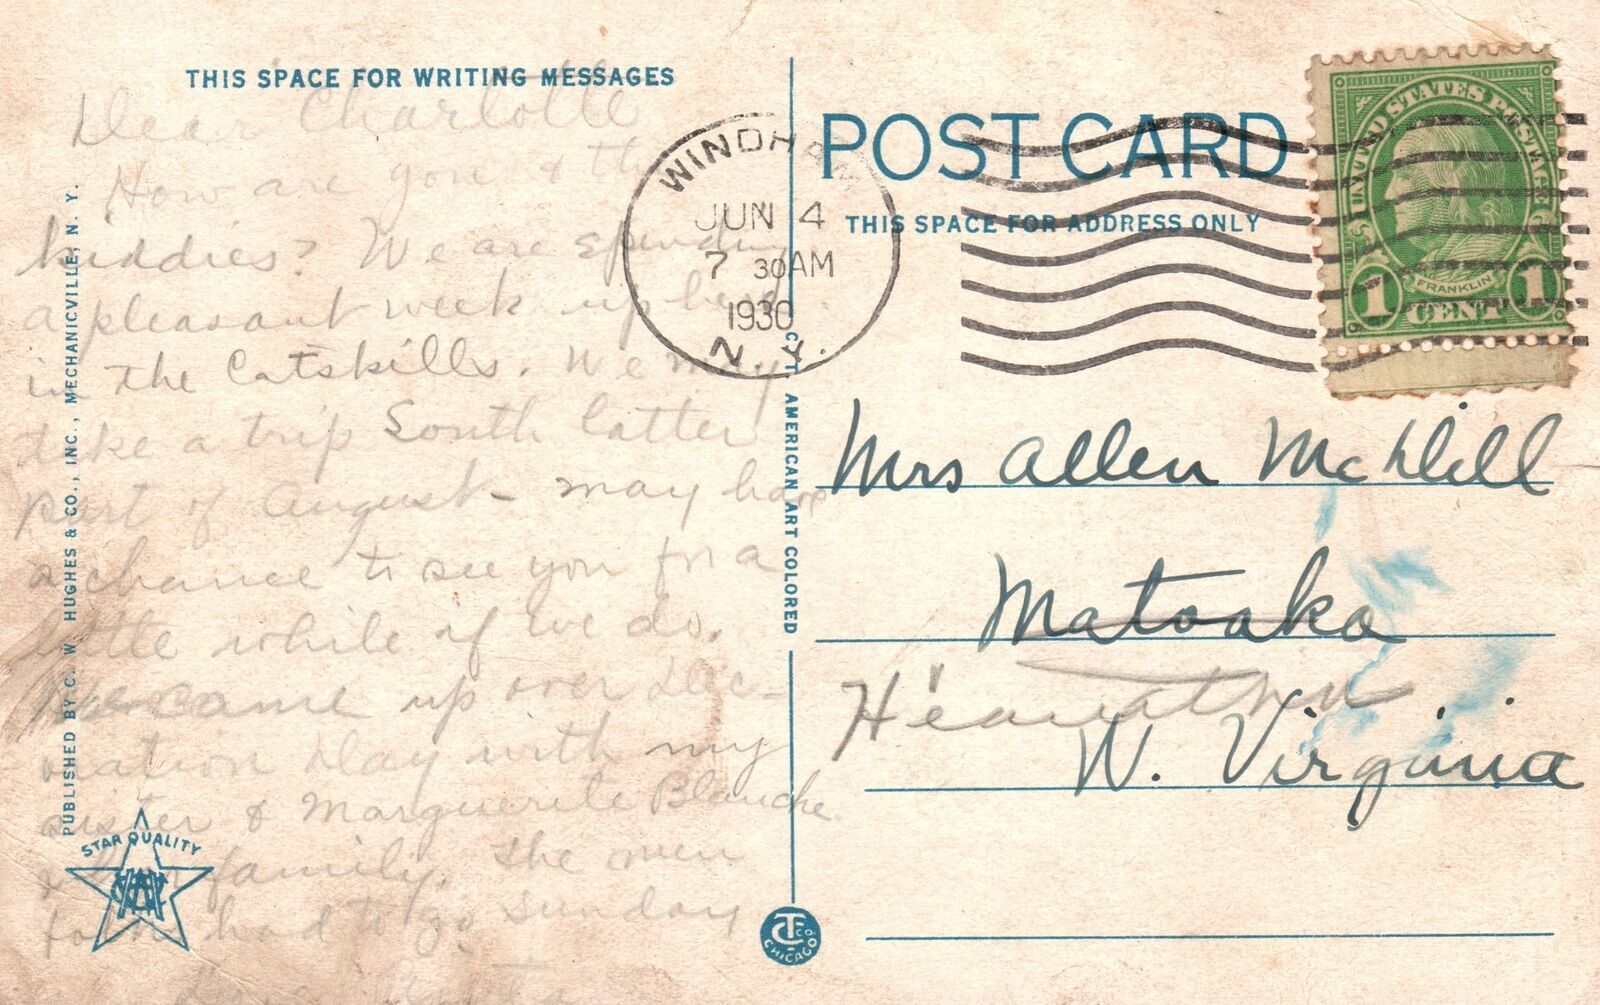 THIS SPACE FOR WRITING MESSAGES
Dear Charlotte
How are you & the
kiddies? We are spending
a pleasant week up here
in the Catskills. We may
take a trip South latter
part of August - may have
a chance to see you for a
little while if we do.
We came up over Dec-
oration Day with my
sister & Marguerite Blanche
& her family. The men
had to go Sunday
Love
PUBLISHED BY C. W. HUGHES & CO., INC., MECHANICVILLE, N. Y.
STAR QUALITY
WINDHAM
JUN 4
7 30AM
1930
N. Y.
C. T. AMERICAN ART COLORED
CT CO
CHICAGO
POST CARD
THIS SPACE FOR ADDRESS ONLY
UNITED STATES POSTAGE
FRANKLIN
1 CENT 1
Mrs Allen McDill
Matoaka
W. Virginia